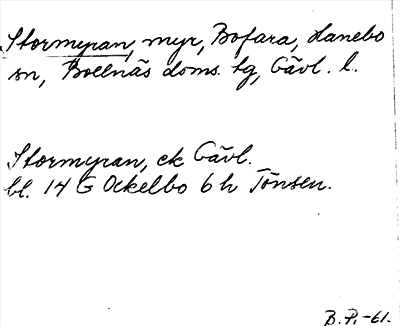 Stormyran, myr, Bofara, Hanebo
sn, Bollnäs doms. tg, Gävl. l.
Stormyran, ek Gävl.
bl. 14 G Ockelbo 6 h Tönsen.
B. P. -61.